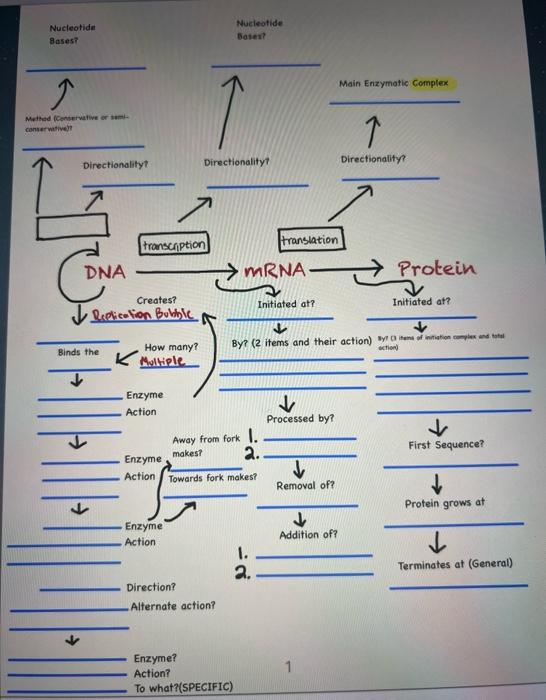 Nucleotide
Bases?
Nucleotide
Bases?
Main Enzymatic Complex
Method (Conservative or semi-
conservative)?
Directionality?
Directionality?
Directionality?
transcription
translation
DNA
mRNA
Protein
Creates?
Replication Bubble
Initiated at?
Initiated at?
Binds the
How many?
Multiple
By? (2 items and their action)
By? (3 items of initiation complex and total
action)
Enzyme
Action
Processed by?
Away from fork
makes?
1.
2.
First Sequence?
Enzyme
Action
Towards fork makes?
Removal of?
Protein grows at
Enzyme
Action
Addition of?
1.
2.
Terminates at (General)
Direction?
Alternate action?
Enzyme?
Action?
To what?(SPECIFIC)
1